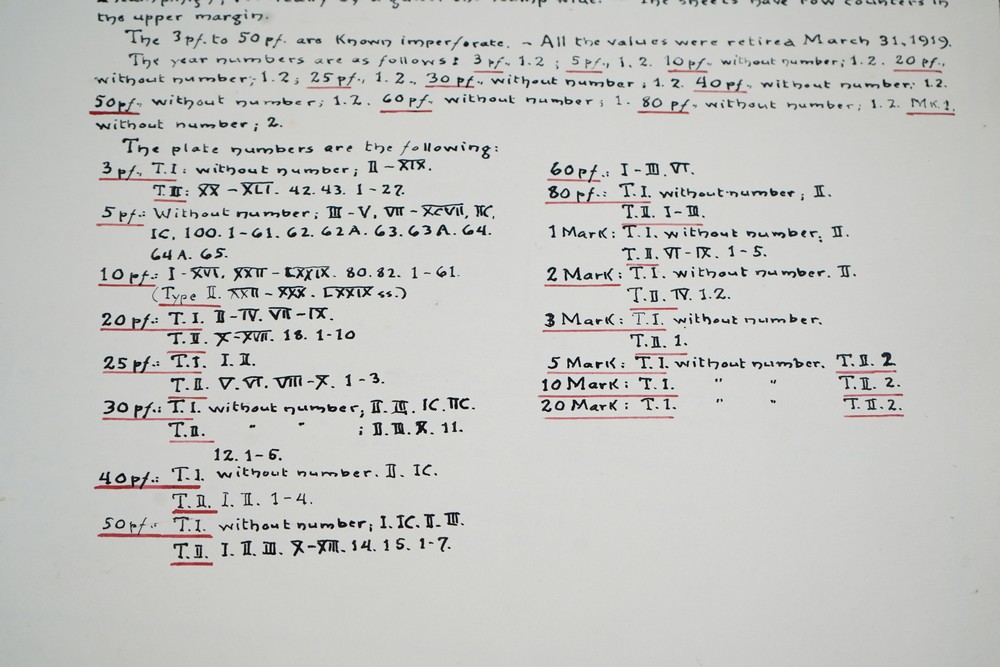 The sheets have row counters in
the upper margin.
The 3 pf. to 50 pf. are Known imperforate. – All the values were retired March 31, 1919.
The year numbers are as follows: 3 pf. 1.2 ; 5 pf., 1. 2. 10 pf. without number; 1.2. 20 pf.,
without number; 1.2; 25 pf., 1.2., 30 pf., without number ; 1.2. 40 pf., without number; 1.2.
50 pf., without number; 1.2. 60 pf., without number ; 1. 80 pf., without number; 1.2. MK.1.
without number; 2.
The plate numbers are the following:
3 pf., T.I: without number; II – XIX.
T.II: XX – XLI. 42. 43. 1 – 27.
5 pf.: Without number; III - V, VII – XCVII, IIC,
IC, 100. 1–61. 62. 62A. 63. 63A. 64.
64A. 65.
10 pf.: I - XVI, XXII – LXXIX. 80. 82. 1 - 61.
(Type II. XXII – XXX. LXXIX ss.)
20 pf.: T.I. II – IV. VII – IX.
T.II. X – XVII. 18. 1-10
25 pf.: T.I. I. II.
T.II. V. VI. VIII – X. 1 – 3.
30 pf.: T.I. without number; II. III. IC. IIC.
T.II. " " ; II. III. X. 11.
12. 1-6.
40 pf.: T.I. without number. II. IC.
T.II. I. II. 1 – 4.
50 pf.: T.I. without number; I. IC. II - III.
T.II. I. II. III. X – XII. 14. 15. 1-7.
60 pf.: I – III. VI.
80 pf.: T.I. without number; II.
T.II. I – III.
1 Mark: T.I. without number; II.
T.II. VI – IX. 1 - 5.
2 Mark: T.I. without number. II.
T.II. IV. 1.2.
3 Mark: T.I. without number.
T.II. 1.
5 Mark: T.I. without number. T.II. 2
10 Mark: T.I. " " T.II. 2.
20 Mark: T.I. " " T.II. 2.